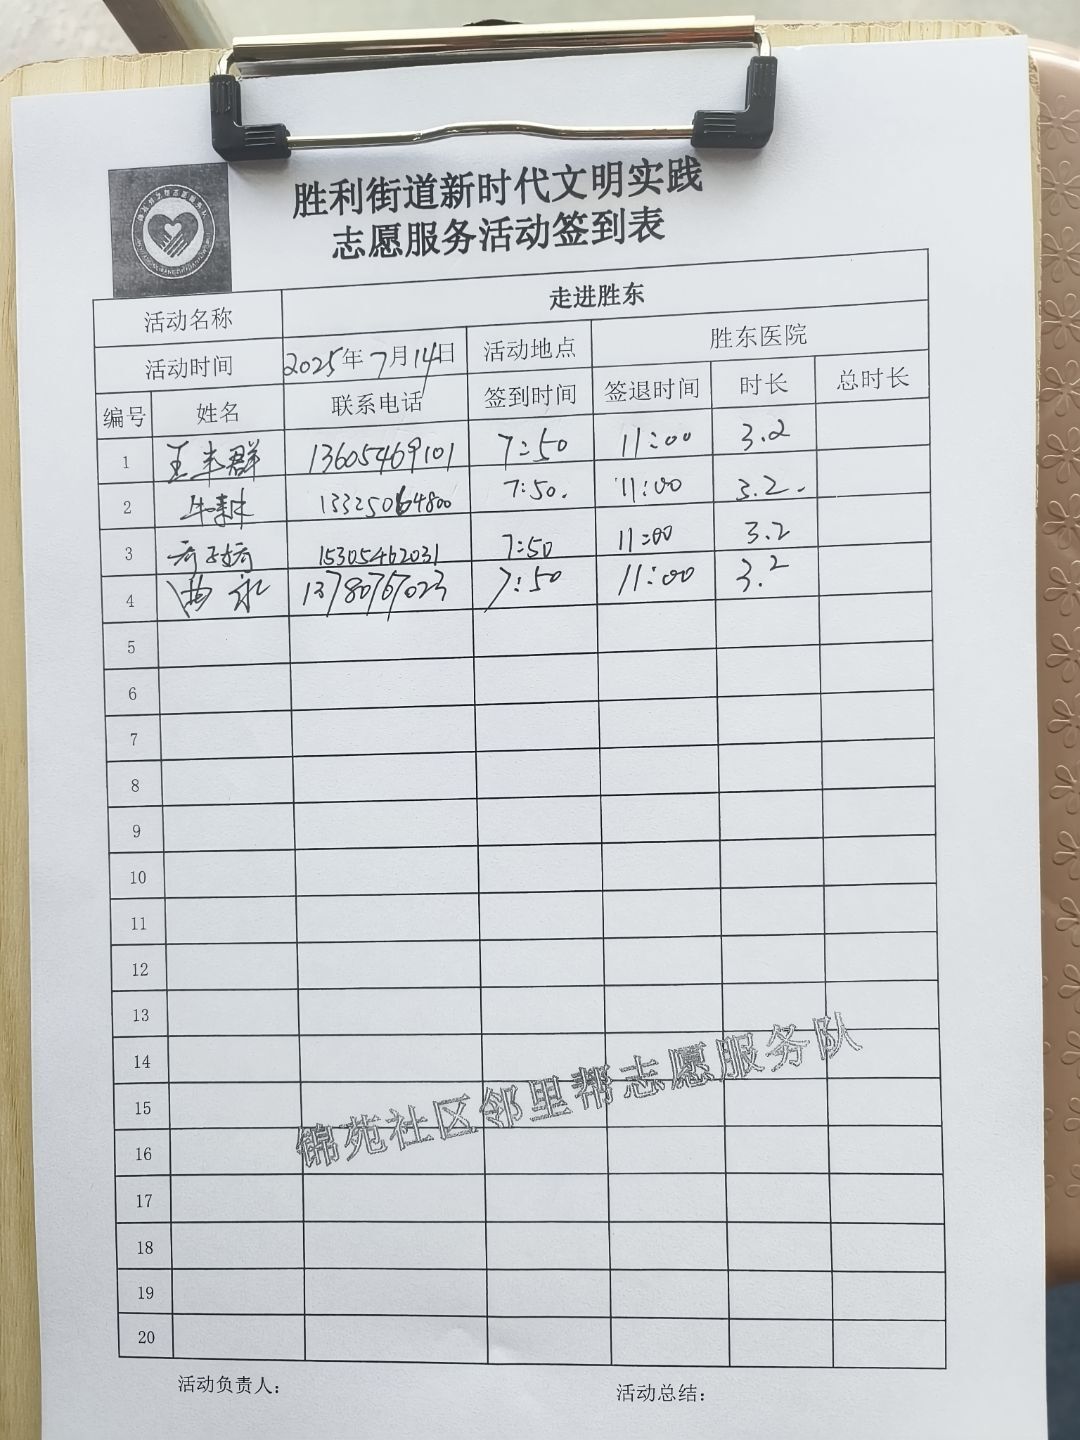 胜利街道新时代文明实践
志愿服务活动签到表
活动名称 走进胜东
活动时间 2025年7月14日 活动地点 胜东医院
编号 姓名 联系电话 签到时间 签退时间 时长 总时长
1 王丰群 13605469101 7:50 11:00 3.2
2 牛耕 13325064800 7:50. 11:00 3.2.
3 15305462031 7:50 11:00 3.2
4 曲永 13780767023 7:50 11:00 3.2
5
6
7
8
9
10
11
12
13
14
15
16
17
18
19
20
锦苑社区邻里帮志愿服务队
活动负责人: 活动总结: